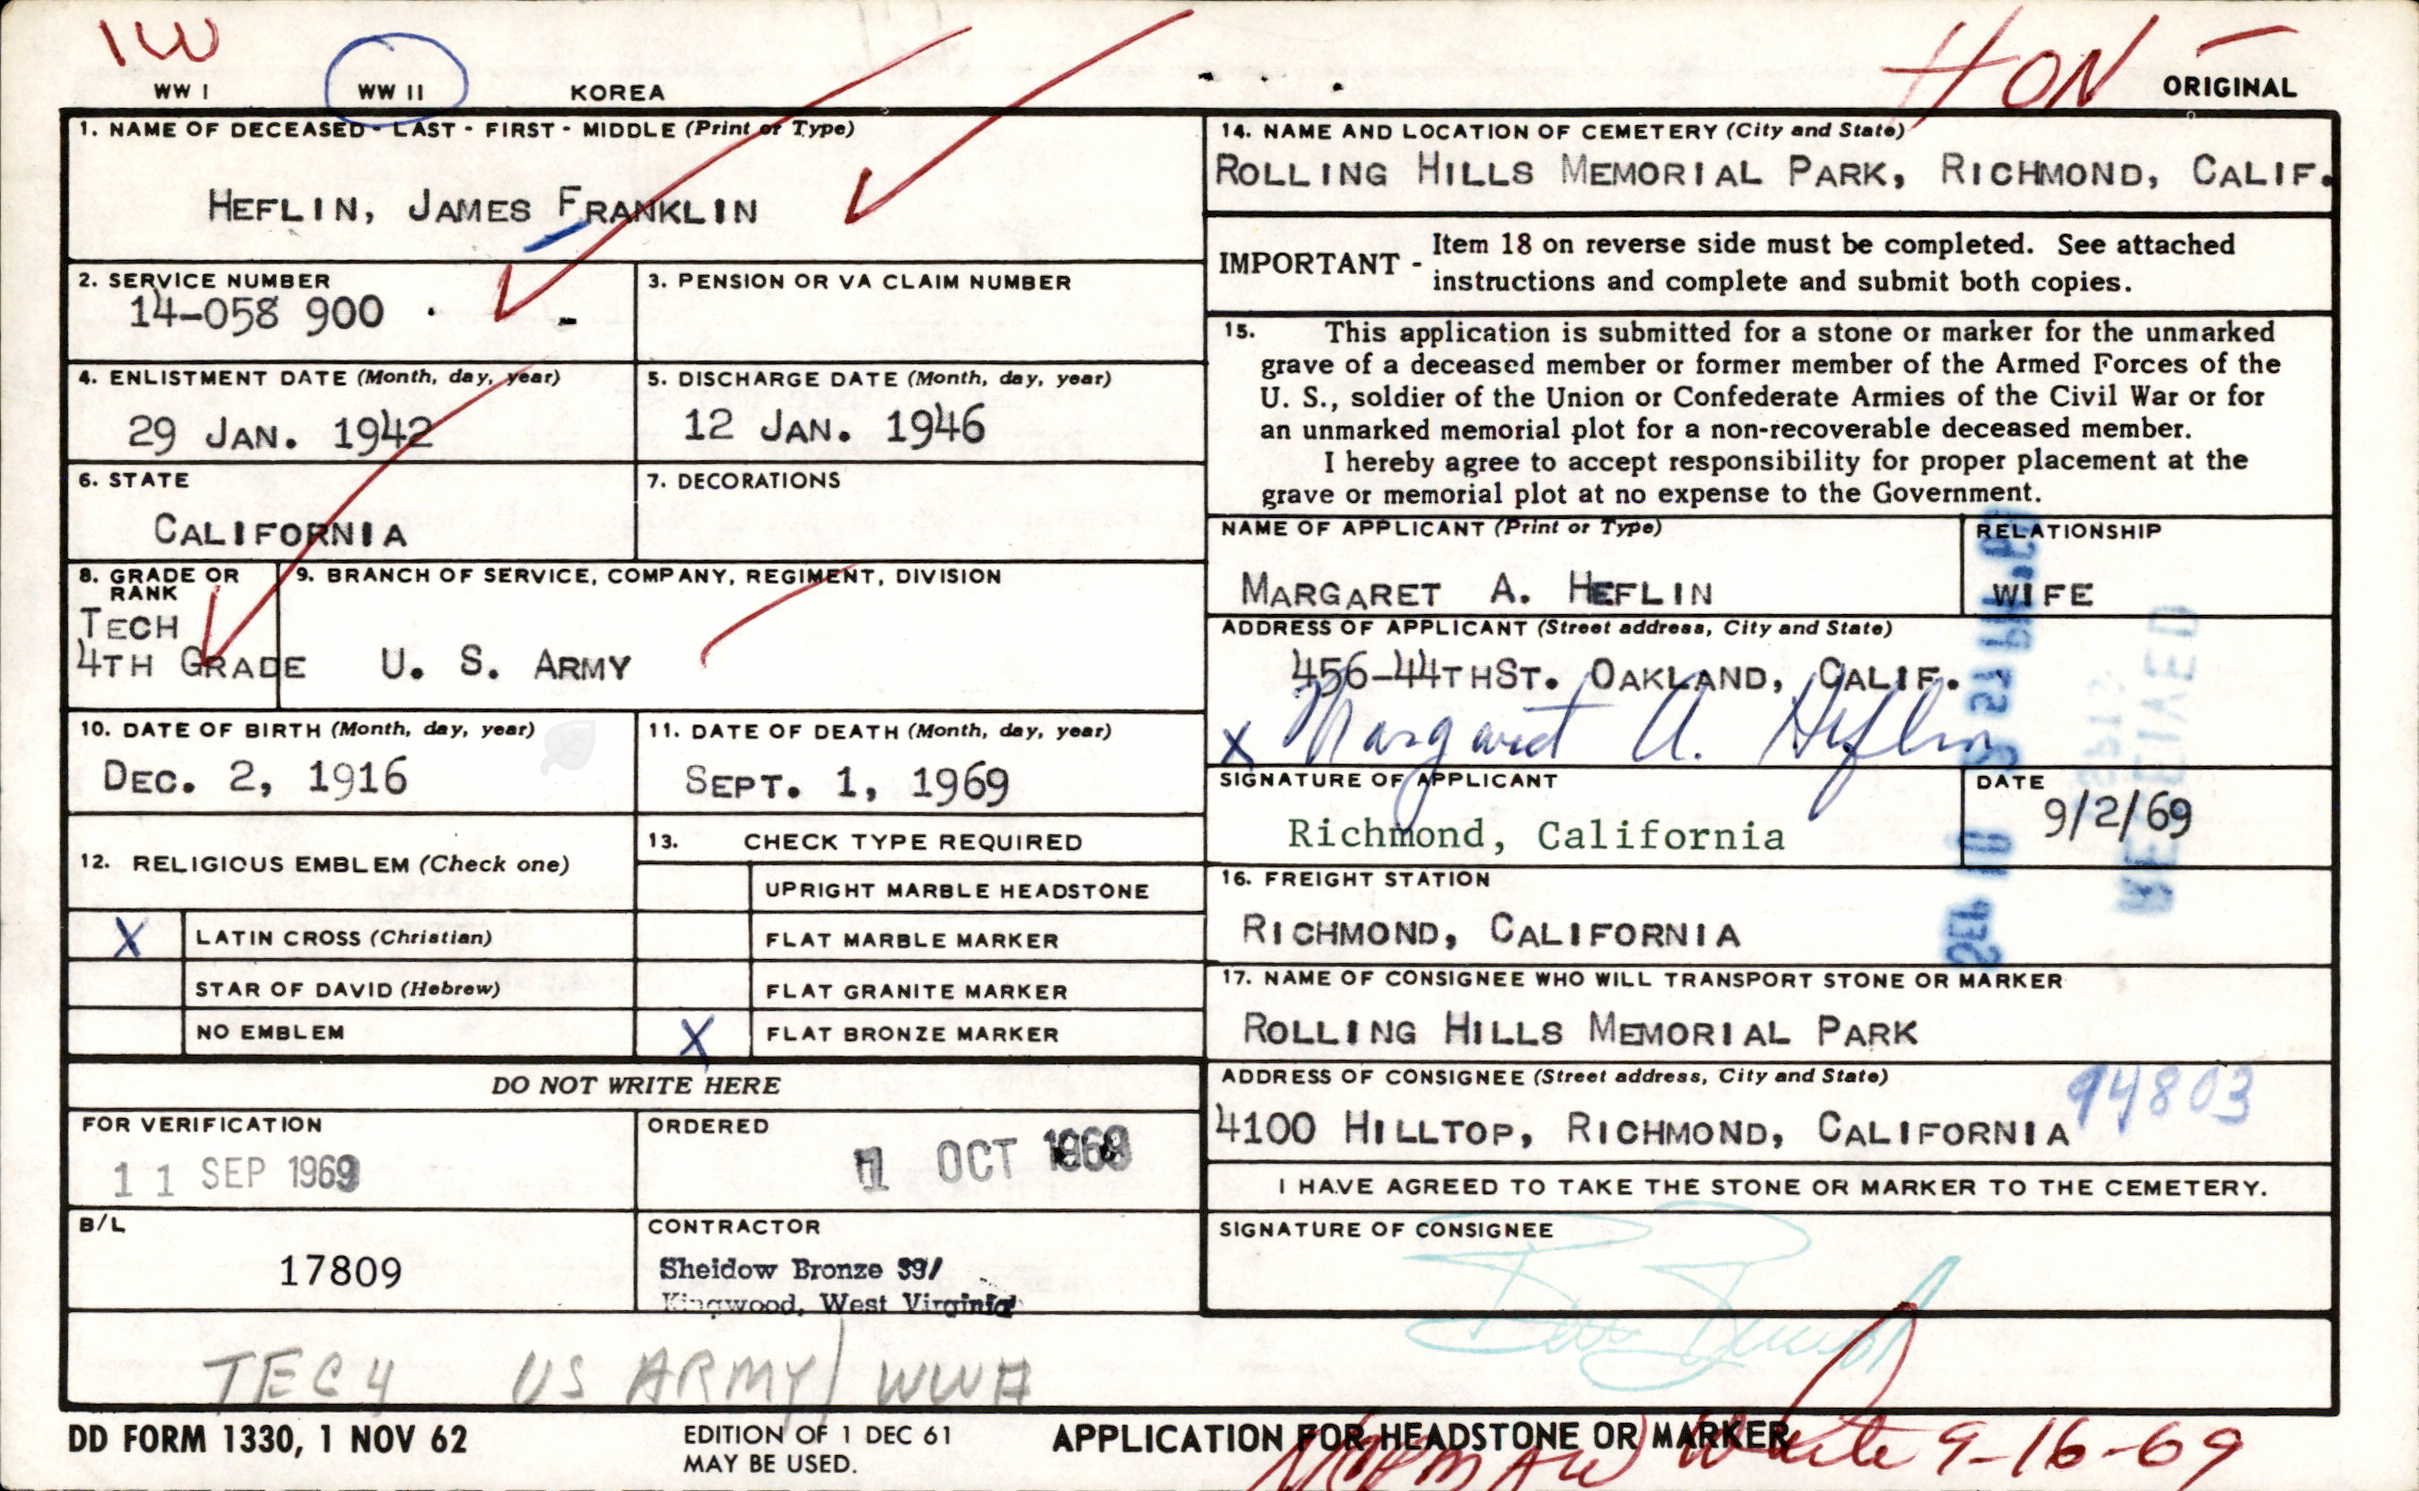 IW
HON
WW I
WW II
KOREA
ORIGINAL
1. NAME OF DECEASED - LAST - FIRST - MIDDLE (Print or Type)
HEFLIN, JAMES FRANKLIN
2. SERVICE NUMBER
14-058 900
3. PENSION OR VA CLAIM NUMBER
4. ENLISTMENT DATE (Month, day, year)
29 JAN. 1942
5. DISCHARGE DATE (Month, day, year)
12 JAN. 1946
6. STATE
CALIFORNIA
7. DECORATIONS
8. GRADE OR
RANK
TECH
4TH GRADE
9. BRANCH OF SERVICE, COMPANY, REGIMENT, DIVISION
U. S. ARMY
10. DATE OF BIRTH (Month, day, year)
DEC. 2, 1916
11. DATE OF DEATH (Month, day, year)
SEPT. 1, 1969
12. RELIGIOUS EMBLEM (Check one)
X LATIN CROSS (Christian)
STAR OF DAVID (Hebrew)
NO EMBLEM
13. CHECK TYPE REQUIRED
UPRIGHT MARBLE HEADSTONE
FLAT MARBLE MARKER
FLAT GRANITE MARKER
X FLAT BRONZE MARKER
DO NOT WRITE HERE
FOR VERIFICATION
11 SEP 1969
ORDERED
1 OCT 1969
B/L
17809
CONTRACTOR
Sheidow Bronze 391
Kingwood, West Virginia
TEC4 US ARMY/ WWII
14. NAME AND LOCATION OF CEMETERY (City and State)
ROLLING HILLS MEMORIAL PARK, RICHMOND, CALIF.
IMPORTANT - Item 18 on reverse side must be completed. See attached
instructions and complete and submit both copies.
15. This application is submitted for a stone or marker for the unmarked
grave of a deceased member or former member of the Armed Forces of the
U. S., soldier of the Union or Confederate Armies of the Civil War or for
an unmarked memorial plot for a non-recoverable deceased member.
I hereby agree to accept responsibility for proper placement at the
grave or memorial plot at no expense to the Government.
NAME OF APPLICANT (Print or Type)
MARGARET A. HEFLIN
RELATIONSHIP
WIFE
ADDRESS OF APPLICANT (Street address, City and State)
456-44THST. OAKLAND, CALIF.
X Margaret A. Heflin
SIGNATURE OF APPLICANT
Richmond, California
DATE
9/2/69
RECEIVED
16. FREIGHT STATION
RICHMOND, CALIFORNIA
17. NAME OF CONSIGNEE WHO WILL TRANSPORT STONE OR MARKER
ROLLING HILLS MEMORIAL PARK
ADDRESS OF CONSIGNEE (Street address, City and State)
94803
4100 HILLTOP, RICHMOND, CALIFORNIA
I HAVE AGREED TO TAKE THE STONE OR MARKER TO THE CEMETERY.
SIGNATURE OF CONSIGNEE
DD FORM 1330, 1 NOV 62
EDITION OF 1 DEC 61
MAY BE USED.
APPLICATION FOR HEADSTONE OR MARKER
9-16-69